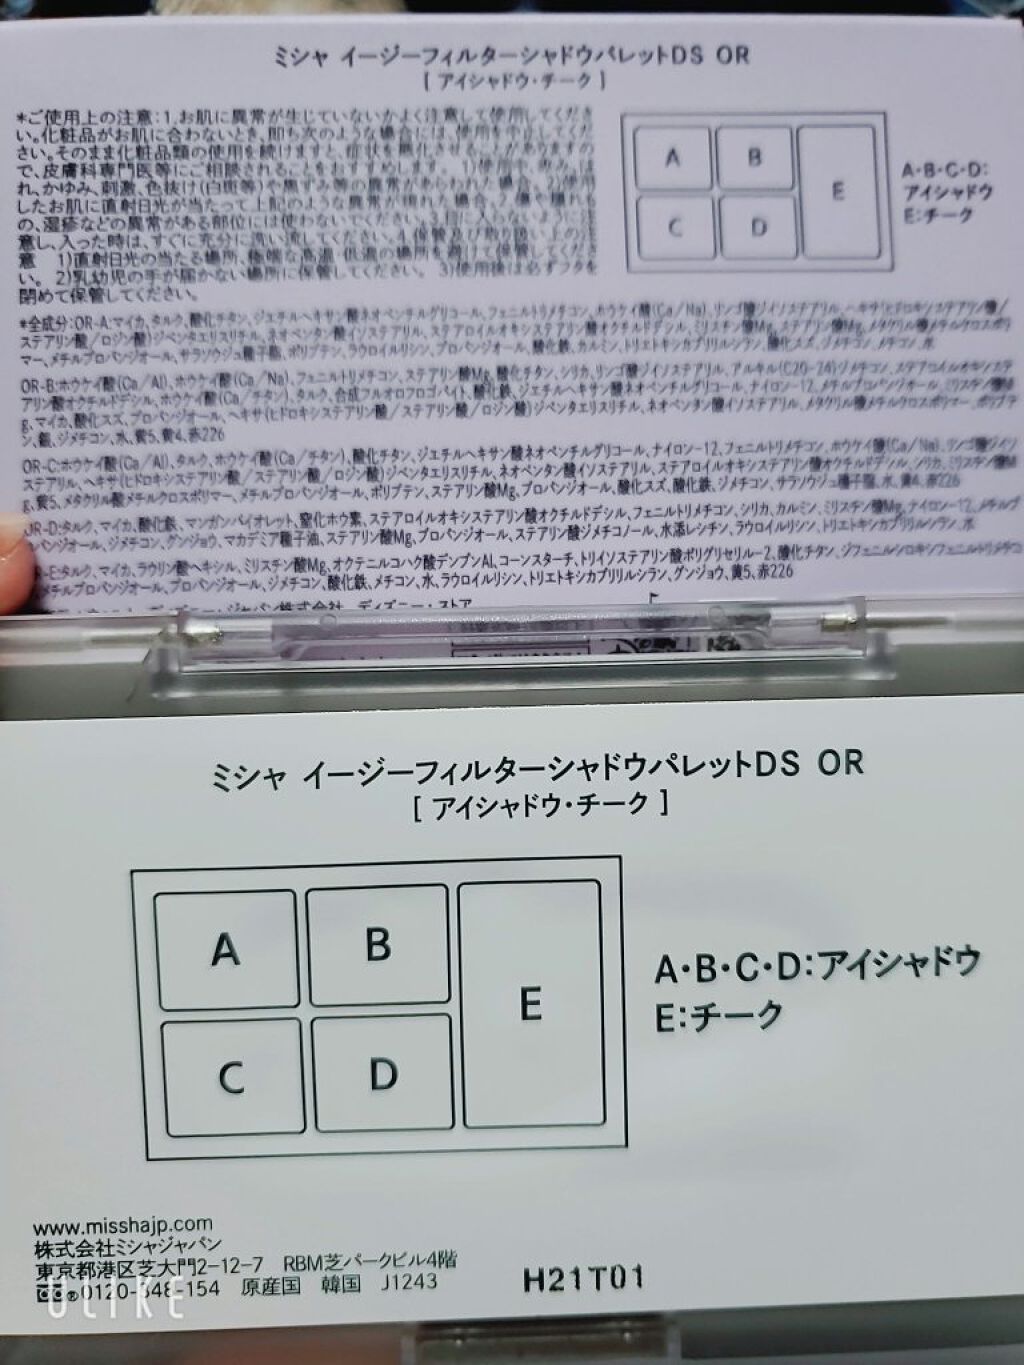 ミシャ イージーフィルターシャドウパレットDS OR
[ アイシャドウ・チーク ]
*ご使用上の注意:1.お肌に異常が生じていないかよく注意して使用してくださ
い。化粧品がお肌に合わないとき、即ち次のような場合には、使用を中止してくだ
さい。そのまま化粧品類の使用を続けますと、症状を悪化させることがありますの
で、皮膚科専門医等にご相談されることをおすすめします。 1)使用中、赤み、は
れ、かゆみ、刺激、色抜け(白斑等)や黒ずみ等の異常があらわれた場合。2)使用
したお肌に直射日光が当たって上記のような異常が現れた場合。2.傷や腫れも
の、湿疹などの異常がある部位には使わないでください。3.目に入らないように注
意し、入った時は、すぐに充分に洗い流してください。4.保管及び取り扱い上の注
意 1)直射日光の当たる場所、極端な高温・低温の場所を避けて保管してくださ
い。 2)乳幼児の手が届かない場所に保管してください。 3)使用後は必ずフタを
閉めて保管してください。
A
B
C
D
E
A・B・C・D:
アイシャドウ
E:チーク
*全成分:OR-A:マイカ、タルク、酸化チタン、ジエチルヘキサン酸ネオペンチルグリコール、フェニルトリメチコン、ホウケイ酸(Ca/Na)、リンゴ酸ジイソステアリル、ヘキサ(ヒドロキシステアリン酸/
ステアリン酸/ロジン酸)ジペンタエリスリチル、ネオペンタン酸イソステアリル、ステアロイルオキシステアリン酸オクチルドデシル、ミリスチン酸Mg、ステアリン酸Mg、メタクリル酸メチルクロスポリ
マー、メチルプロパンジオール、サラソウジュ種子脂、ポリブテン、ラウロイルリシン、プロパンジオール、酸化鉄、カルミン、トリエトキシカプリリルシラン、酸化スズ、ジメチコン、メチコン、水
OR-B:ホウケイ酸(Ca/Al)、ホウケイ酸(Ca/Na)、フェニルトリメチコン、ステアリン酸Mg、酸化チタン、シリカ、リンゴ酸ジイソステアリル、アルキル(C20-24)ジメチコン、ステアロイルオキシステ
アリン酸オクチルドデシル、ホウケイ酸(Ca/チタン)、タルク、合成フルオロフロゴパイト、酸化鉄、ジエチルヘキサン酸ネオペンチルグリコール、ナイロン-12、メチルプロパンジオール、ミリスチン酸M
g、マイカ、酸化スズ、プロパンジオール、ヘキサ(ヒドロキシステアリン酸/ステアリン酸/ロジン酸)ジペンタエリスリチル、ネオペンタン酸イソステアリル、メタクリル酸メチルクロスポリマー、ポリブテ
ン、銀、ジメチコン、水、黄5、黄4、赤226
OR-C:ホウケイ酸(Ca/Al)、タルク、ホウケイ酸(Ca/チタン)、酸化チタン、ジエチルヘキサン酸ネオペンチルグリコール、ナイロン-12、フェニルトリメチコン、ホウケイ酸(Ca/Na)、リンゴ酸ジイソ
ステアリル、ヘキサ(ヒドロキシステアリン酸/ステアリン酸/ロジン酸)ジペンタエリスリチル、ネオペンタン酸イソステアリル、ステアロイルオキシステアリン酸オクチルドデシル、シリカ、ミリスチン酸M
g、黄5、メタクリル酸メチルクロスポリマー、メチルプロパンジオール、ポリブテン、ステアリン酸Mg、プロパンジオール、酸化スズ、酸化鉄、ジメチコン、サラソウジュ種子脂、水、黄4、赤226
OR-D:タルク、マイカ、酸化鉄、マンガンバイオレット、窒化ホウ素、ステアロイルオキシステアリン酸オクチルドデシル、フェニルトリメチコン、シリカ、カルミン、ミリスチン酸Mg、ナイロン-12、メチルプ
ロパンジオール、ジメチコン、グンジョウ、マカデミア種子油、ステアリン酸Mg、プロパンジオール、ステアリン酸ジメチコノール、水添レシチン、ラウロイルリシン、トリエトキシカプリリルシラン、水
-E:タルク、マイカ、ラウリン酸ヘキシル、ミリスチン酸Mg、オクテニルコハク酸デンプンAl、コーンスターチ、トリイソステアリン酸ポリグリセリル-2、酸化チタン、ジフェニルシロキシフェニルトリメチコ
メチルプロパンジオール、プロパンジオール、ジメチコン、酸化鉄、メチコン、水、ラウロイルリシン、トリエトキシカプリリルシラン、グンジョウ、黄5、赤226
ジャパン株式会社 ディズニー・ストア
ミシャ イージーフィルターシャドウパレットDS OR
[ アイシャドウ・チーク ]
A
B
C
D
E
A・B・C・D:アイシャドウ
E:チーク
www.misshajp.com
株式会社ミシャジャパン
東京都港区芝大門2-12-7 RBM芝パークビル4階
0120-348-154 原産国 韓国 J1243
H21T01
ULIKE